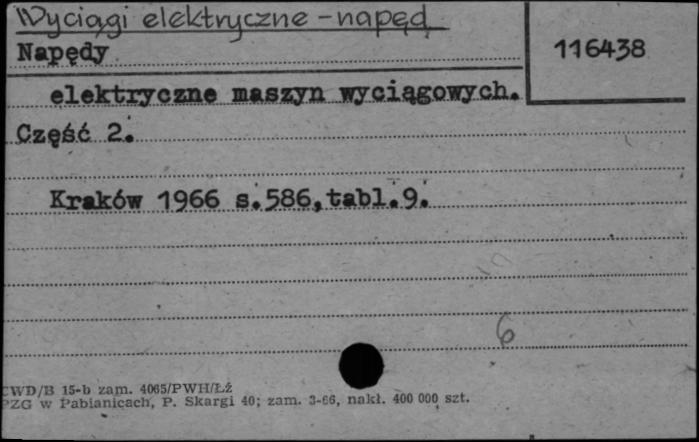 Wyciągi elektryczne - napęd
Napędy
116438
elektryczne maszyn wyciągowych.
Część 2.
Kraków 1966 s.586,tabl.9.
6
CWD/B 15-b zam. 4065/PWH/Łź
PZG w Pabianicach, P. Skargi 40; zam. 3-66, nakł. 400 000 szt.